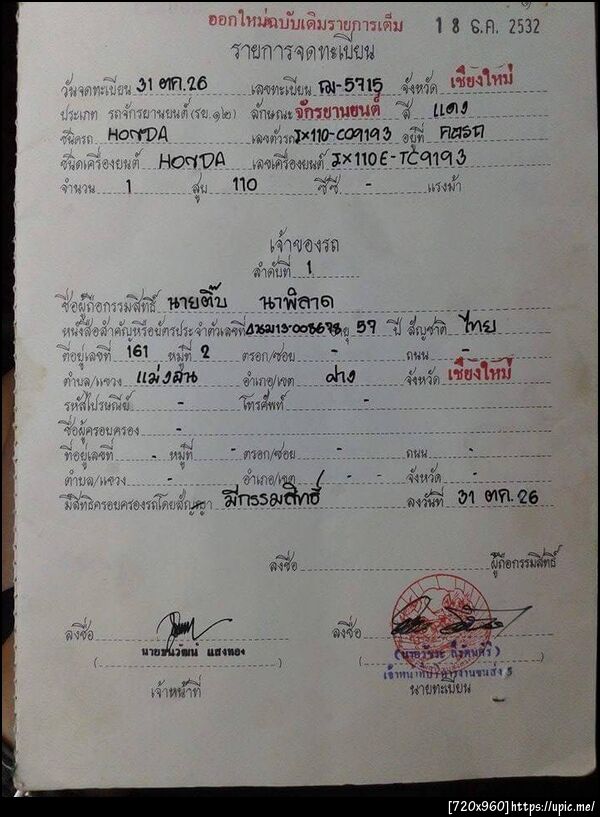 ออกใหม่ฉบับเดิมรายการเต็ม 18 ธ.ค. 2532
รายการจดทะเบียน
วันจดทะเบียน 31 ตค.26 เลขทะเบียน -5715 จังหวัด เชียงใหม่
ประเภท รถจักรยานยนต์(รย.๑๒) ลักษณะ จักรยานยนต์ สี แดง
ชนิดรถ HONDA เลขตัวรถ JX110-C09193 อยู่ที่ คอรถ
ชนิดเครื่องยนต์ HONDA เลขเครื่องยนต์ JX110E-TC9193
จำนวน 1 สูบ 110 ซีซี - แรงม้า
เจ้าของรถ
ลำดับที่ 1
ชื่อผู้ถือกรรมสิทธิ์ นายติ๊บ นาพิลาด
หนังสือสำคัญหรือบัตรประจำตัวเลขที่ อายุ 57 ปี สัญชาติ ไทย
ที่อยู่เลขที่ 161 หมู่ที่ 2 ตรอก/ซอย - ถนน -
ตำบล/แขวง อำเภอ/เขต ฝาง จังหวัด เชียงใหม่
รหัสไปรษณีย์ - โทรศัพท์ -
ชื่อผู้ครอบครอง -
ที่อยู่เลขที่ - หมู่ที่ - ตรอก/ซอย - ถนน -
ตำบล/แขวง - อำเภอ/เขต - จังหวัด -
มีสิทธิครอบครองรถโดยสัญญา มีกรรมสิทธิ์ ลงวันที่ 31 ตค.26
ลงชื่อ ผู้ถือกรรมสิทธิ์
ลงชื่อ ลงชื่อ
นายชนวัฒน์ แสงทอง
เจ้าหน้าที่บริหารงานขนส่ง 5
เจ้าหน้าที่ นายทะเบียน
[720x960]https://upic.me/